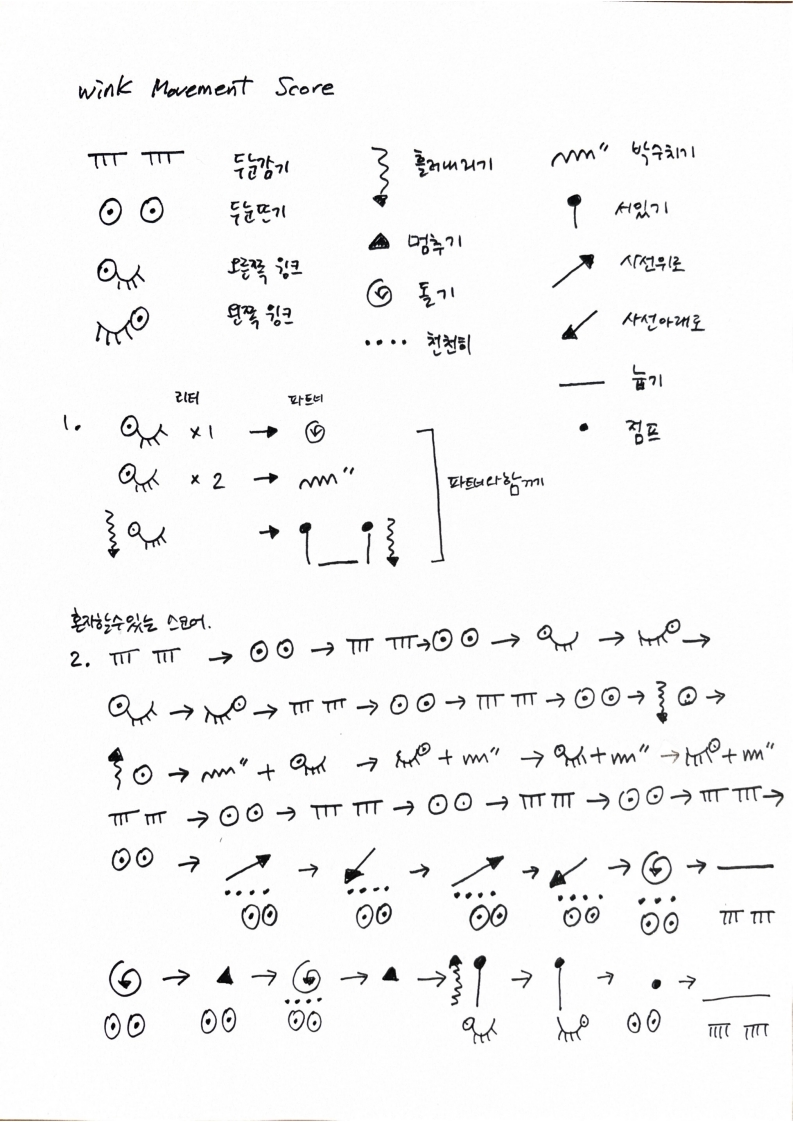 Wink Movement Score
두눈감기
두눈뜬기
오른쪽 윙크
왼쪽 윙크
흘러내리기
멈추기
돌기
천천히
박수치기
서있기
사선위로
사선아래로
눕기
점프
리더 파트너
1. x 1
x 2
파트너와함께
혼자할수있는 스코어.
2.